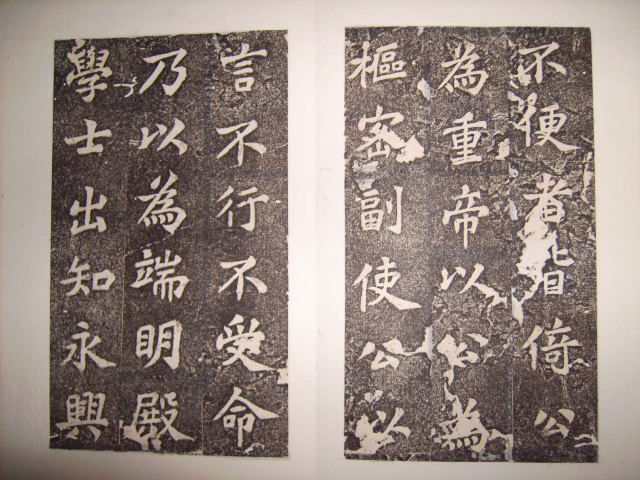 不便者皆倚公
為重帝以公為
樞密副使公以
言不行不受命
乃以為端明殿
學士出知永興